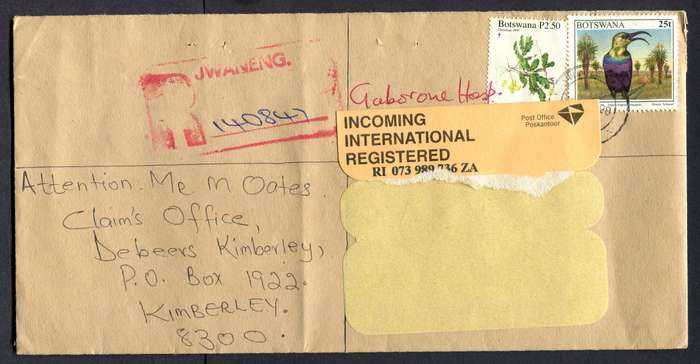 Botswana P2.50
Christmas 1997
BOTSWANA 25t
JWANENG.
R
140847
Gaborone Hosp.
INCOMING
INTERNATIONAL
REGISTERED
Post Office
Poskantoor
RI 073 989 736 ZA
Attention: Me M Oates.
Claim's Office,
Debeers Kimberley,
P.O. Box 1922.
KIMBERLEY.
8300.